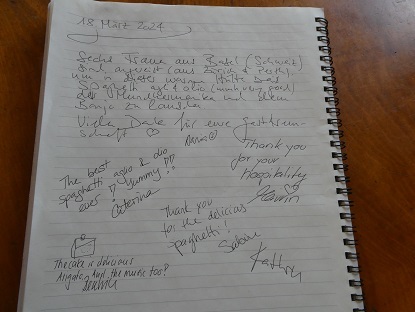 18 März 2024
Sechs Frauen aus Basel (Schweiz)
sind angereist (aus Zürich & Perth),
um in dieser warmen Hütte das
Spaghetti aglio & olio (umh very good)
der Mundharmonika und dem
Banjo zu lauschen
Vielen Dank für eure Gastfreun-
schaft ♡
Anna
Thank you
for your
Hospitality
The best
spaghetti aglio & olio
ever! Yummy!!
Caterina
Thank you
for the delicious
spaghetti!
Sabine
Kathrin
The cake is delicious
And the music too!